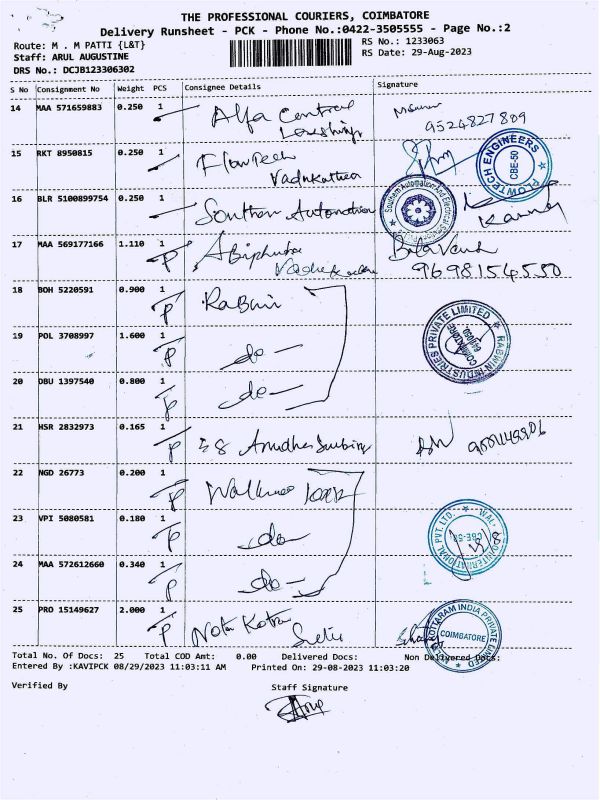 THE PROFESSIONAL COURIERS, COIMBATORE
Delivery Runsheet - PCK - Phone No.:0422-3505555 - Page No.:2
Route: M . M PATTI {L&T}
RS No.: 1233063
Staff: ARUL AUGUSTINE
RS Date: 29-Aug-2023
DRS No.: DCJB123306302
S No Consignment No Weight PCS Consignee Details Signature
14 MAA 571659883 0.250 1 Alfa Central
9524827809
15 RKT 8950815 0.250 1 Flowtech
FLOWTECH ENGINEERS CBE-50
16 BLR 5100899754 0.250 1 Southern Automation
17 MAA 569177166 1.110 1
9698154550
18 BOH 5220591 0.900 1 Rabwin
RABWIN INDUSTRIES PRIVATE LIMITED COIMBATORE
19 POL 3708997 1.600 1 do
20 DBU 1397540 0.800 1 do
21 HSR 2832973 0.165 1
22 NGD 26773 0.200 1
23 VPI 5080581 0.180 1 do
24 MAA 572612660 0.340 1 do
25 PRO 15149627 2.000 1
COIMBATORE
Total No. Of Docs: 25 Total COD Amt: 0.00 Delivered Docs: Non Delivered Docs:
Entered By :KAVIPCK 08/29/2023 11:03:11 AM Printed On: 29-08-2023 11:03:20
Verified By Staff Signature